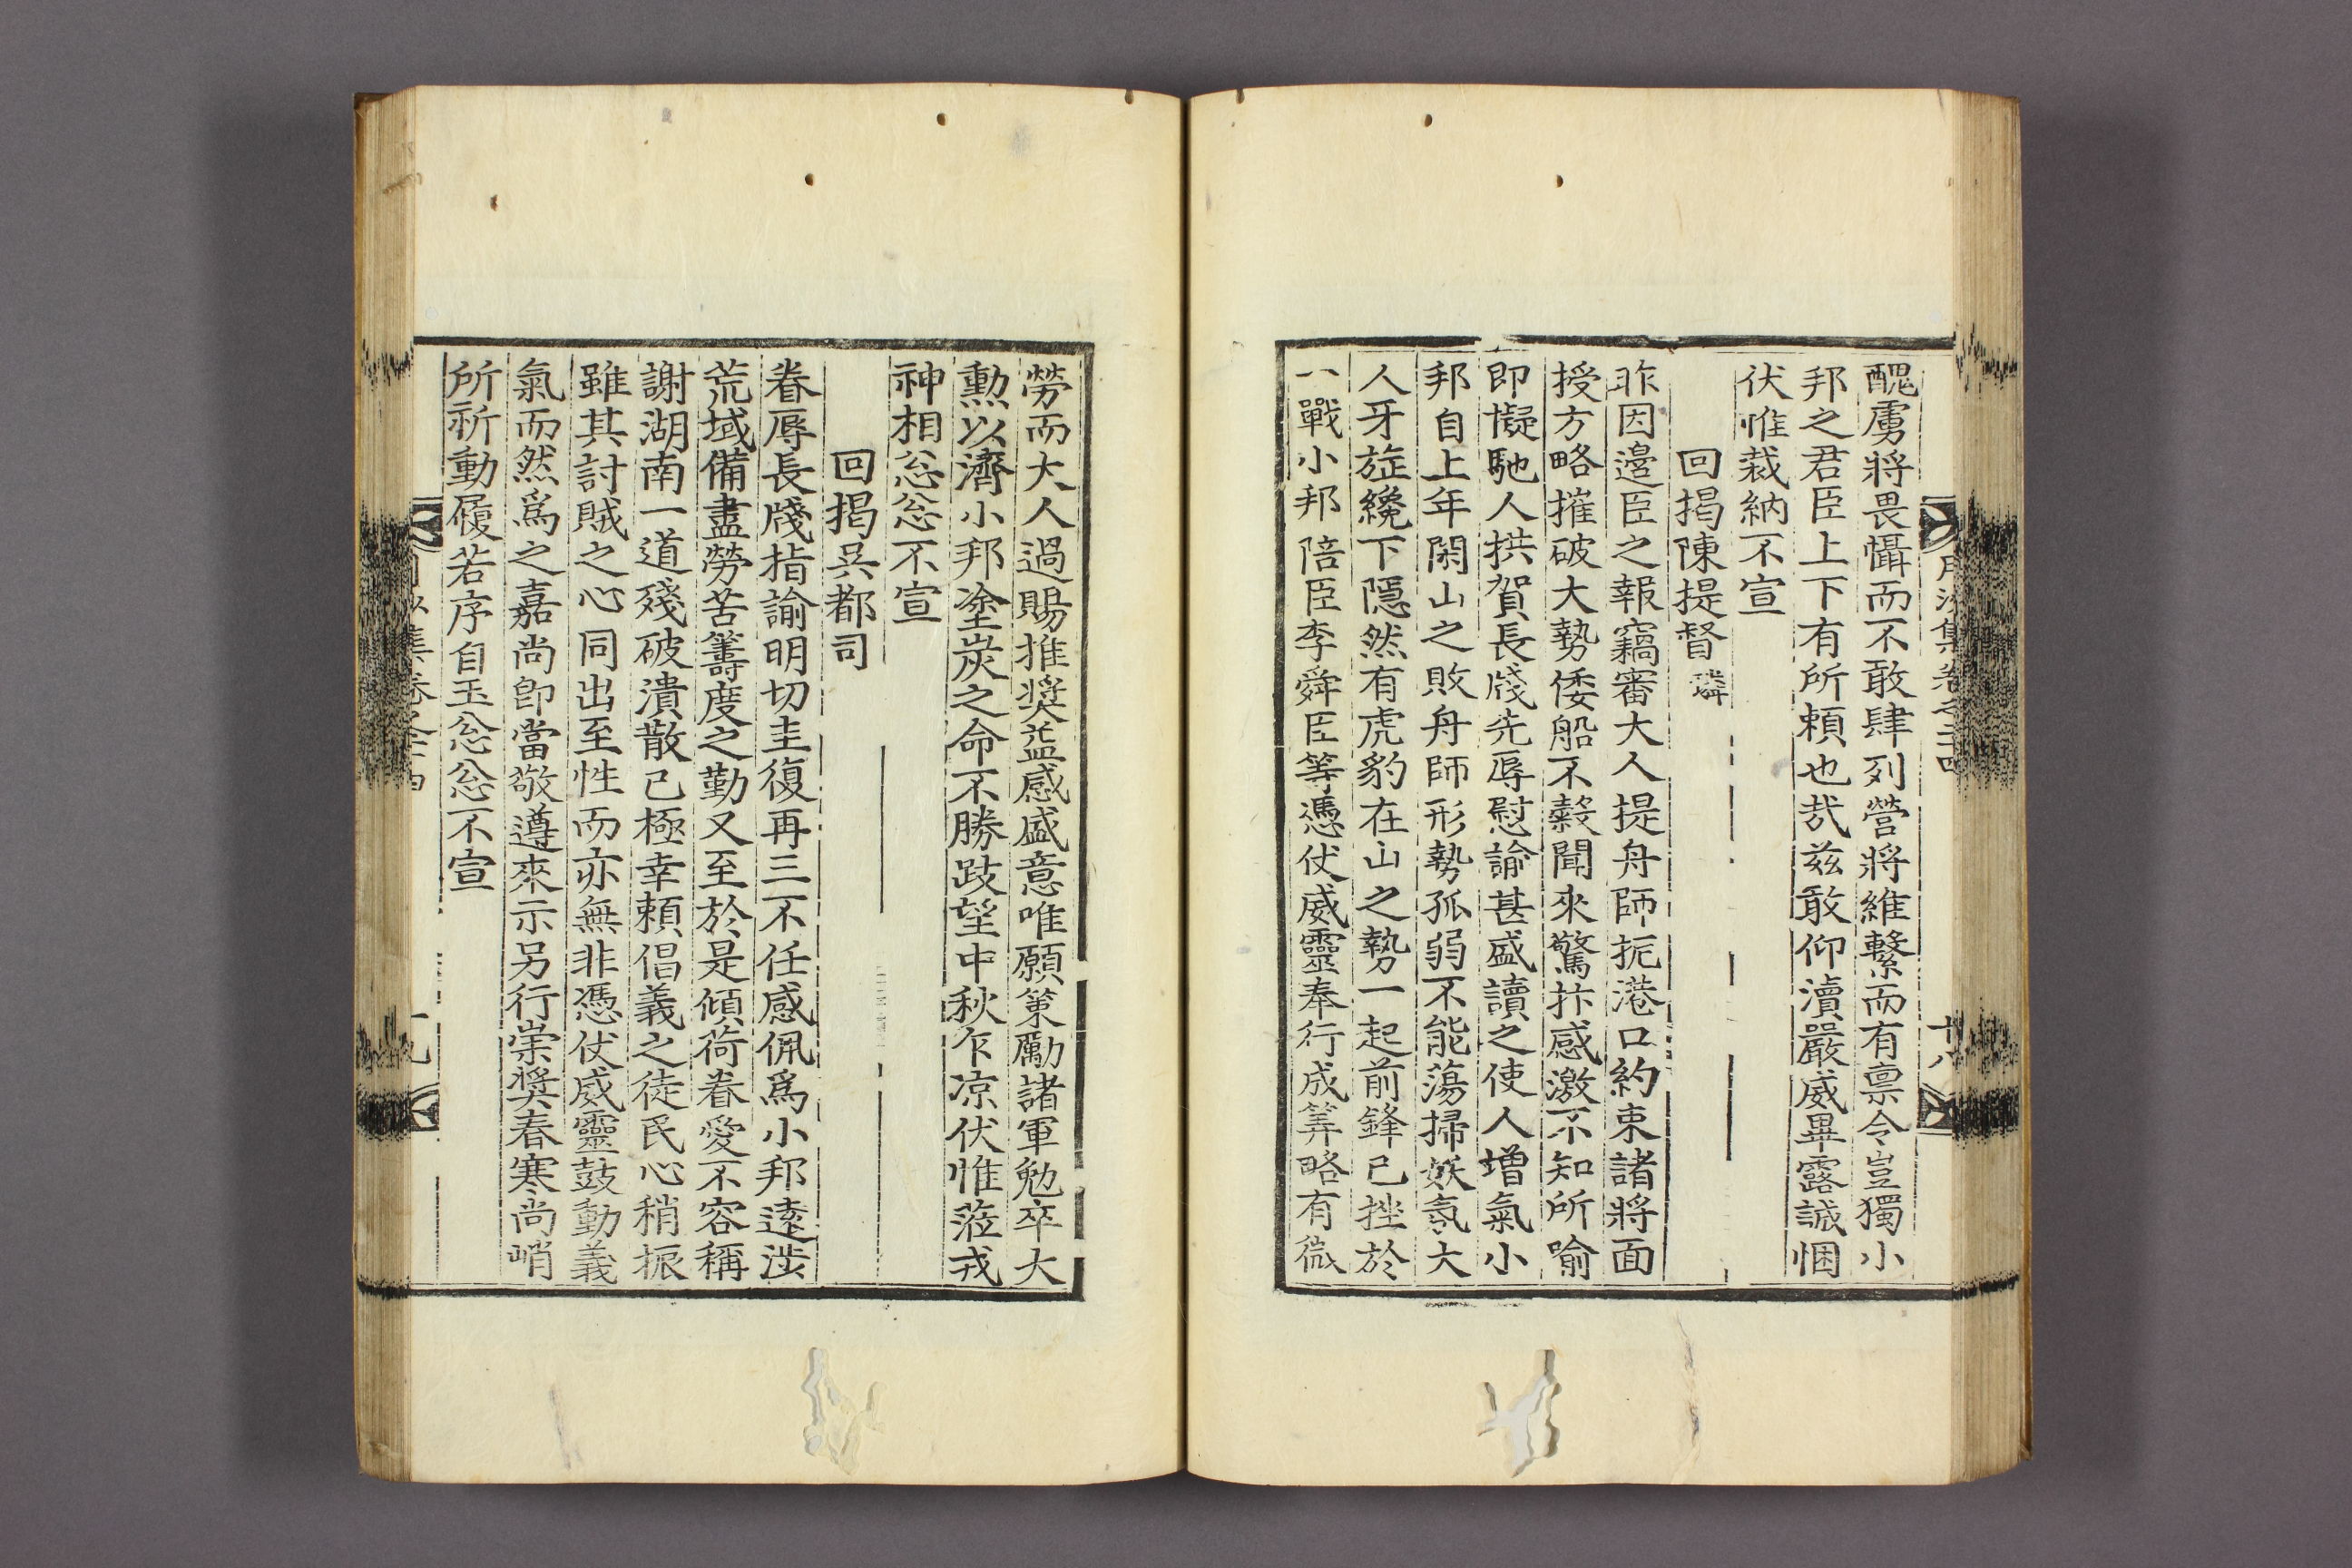 醜虜將畏懾而不敢肆列營將維繫而有禀令豈獨小
邦之君臣上下有所賴也㢤兹敢仰瀆嚴威畢露誠悃
伏惟裁納不宣
回揭陳提督 璘
昨因邊臣之報竊審大人提舟師扼港口約束諸將面
授方略摧破大勢倭船不穀聞來驚抃感激不知所喩
即擬馳人拱賀長牋先辱慰諭甚盛讀之使人增氣小
邦自上年閑山之敗舟師形勢孤弱不能蕩掃妖氛大
人牙旌纔下隱然有虎豹在山之勢一起前鋒已挫於
一戰小邦陪臣李舜臣等憑仗威靈奉行成筭略有微
勞而大人過賜推奬益感盛意唯願策勵諸軍勉卒大
勳以濟小邦塗炭之命不勝跂望中秋乍凉伏惟莅戎
神相忩忩不宣
回揭吳都司
眷辱長牋指諭明切圭復再三不任感佩爲小邦遠涉
荒域備盡勞苦籌度之勤又至於是傾荷眷愛不容稱
謝湖南一道殘破潰散已極幸賴倡義之徒民心稍振
雖其討賊之心同出至性而亦無非憑仗威靈鼓動義
氣而然爲之嘉尚卽當敬遵來示另行崇奬春寒尚峭
所祈動履若序自玉忩忩不宣